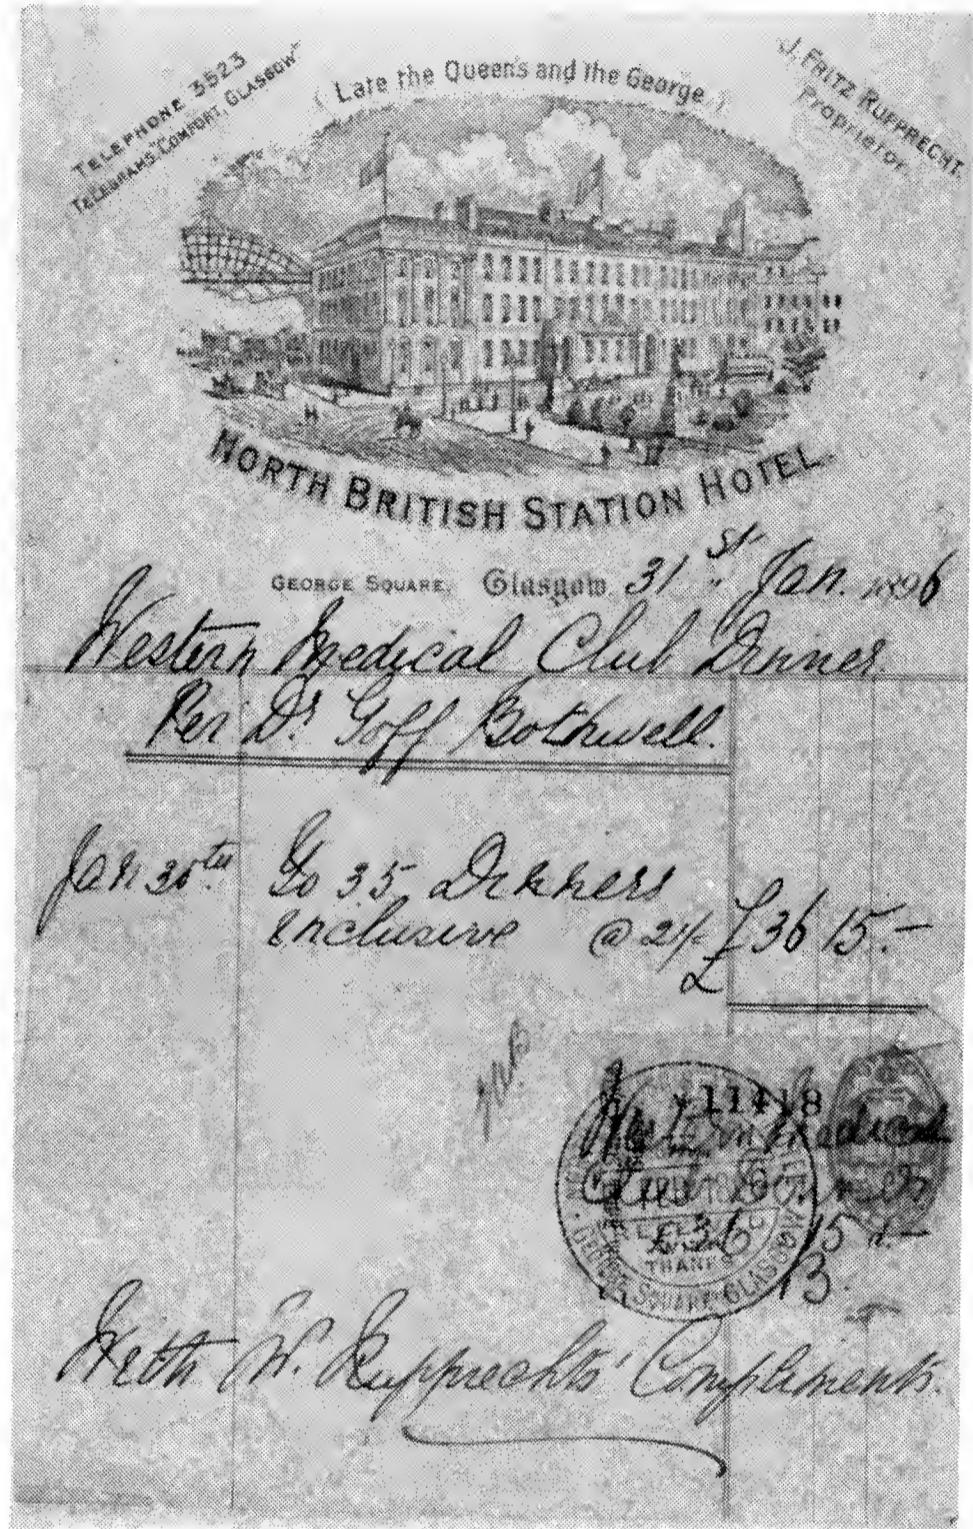 TELEPHONE 3523
TELEGRAMS "COMFORT, GLASGOW"
(Late the Queen's and the George.)
J. FRITZ RUPPRECHT.
Proprietor.
NORTH BRITISH STATION HOTEL.
GEORGE SQUARE, Glasgow, 31st Jan. 1896
Western Medical Club Dinner.
Per Dr Goff Bothwell.
Jan 30th To 35 Dinners
inclusive @ 21/- £36 15.-
£
11418
Western Medical
£36 15
THANKS
GEORGE SQUARE, GLASGOW
With W. Rupprechts' Compliments.